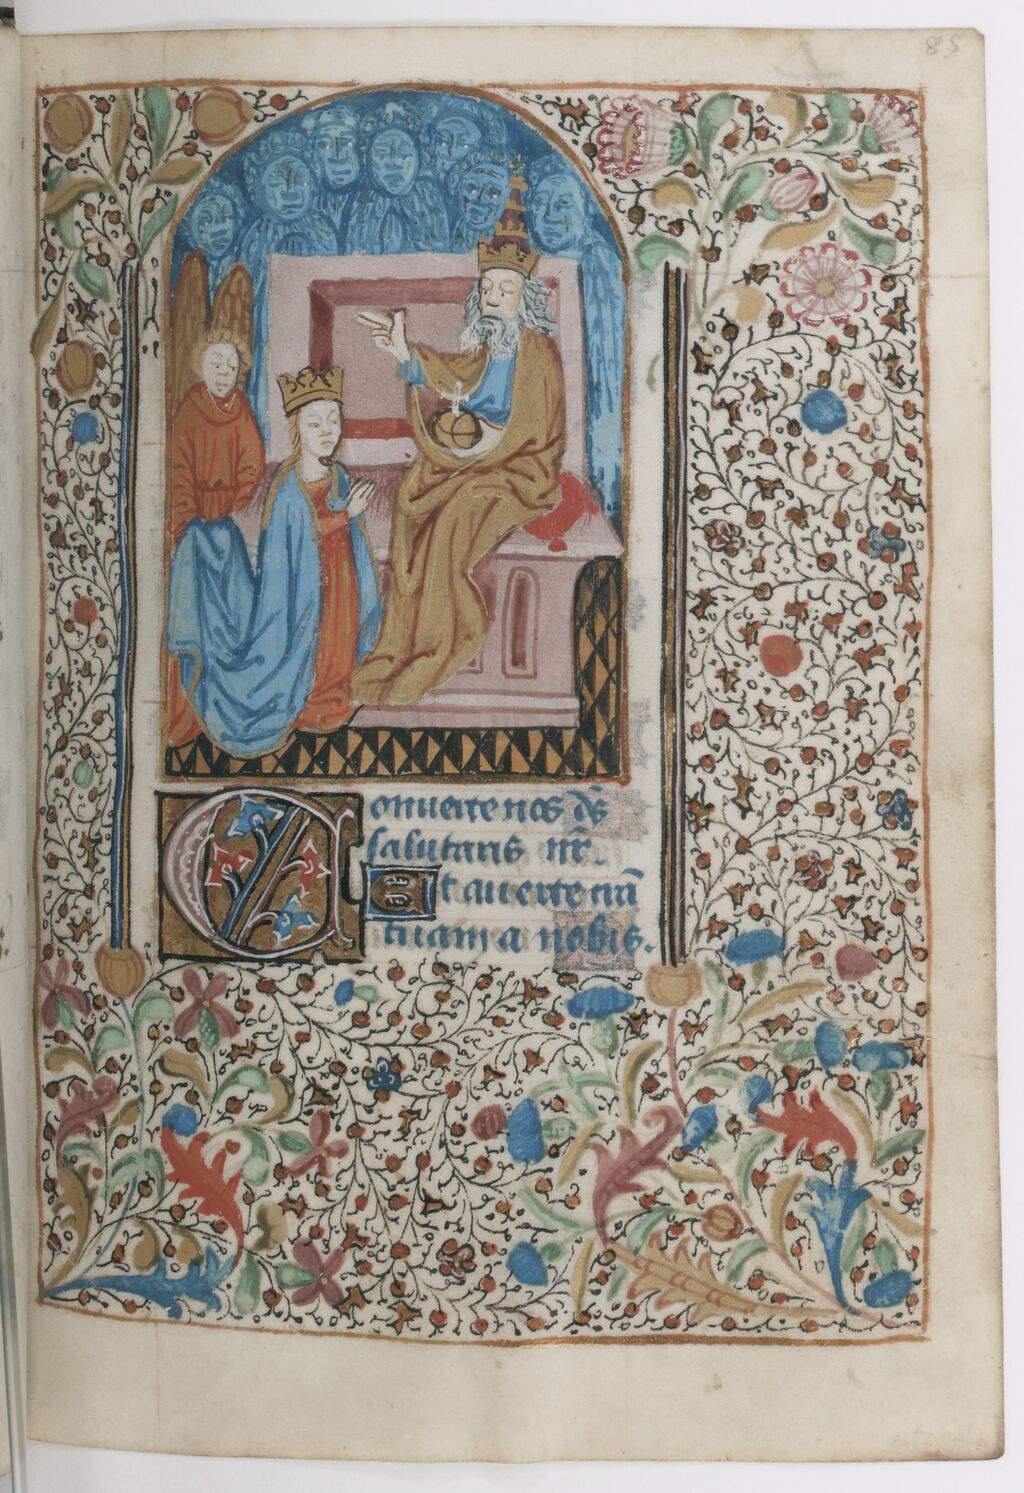 85
Conuerte nos ds̄
salutaris nr̄.
Et auerte irā
tuam a nobis.